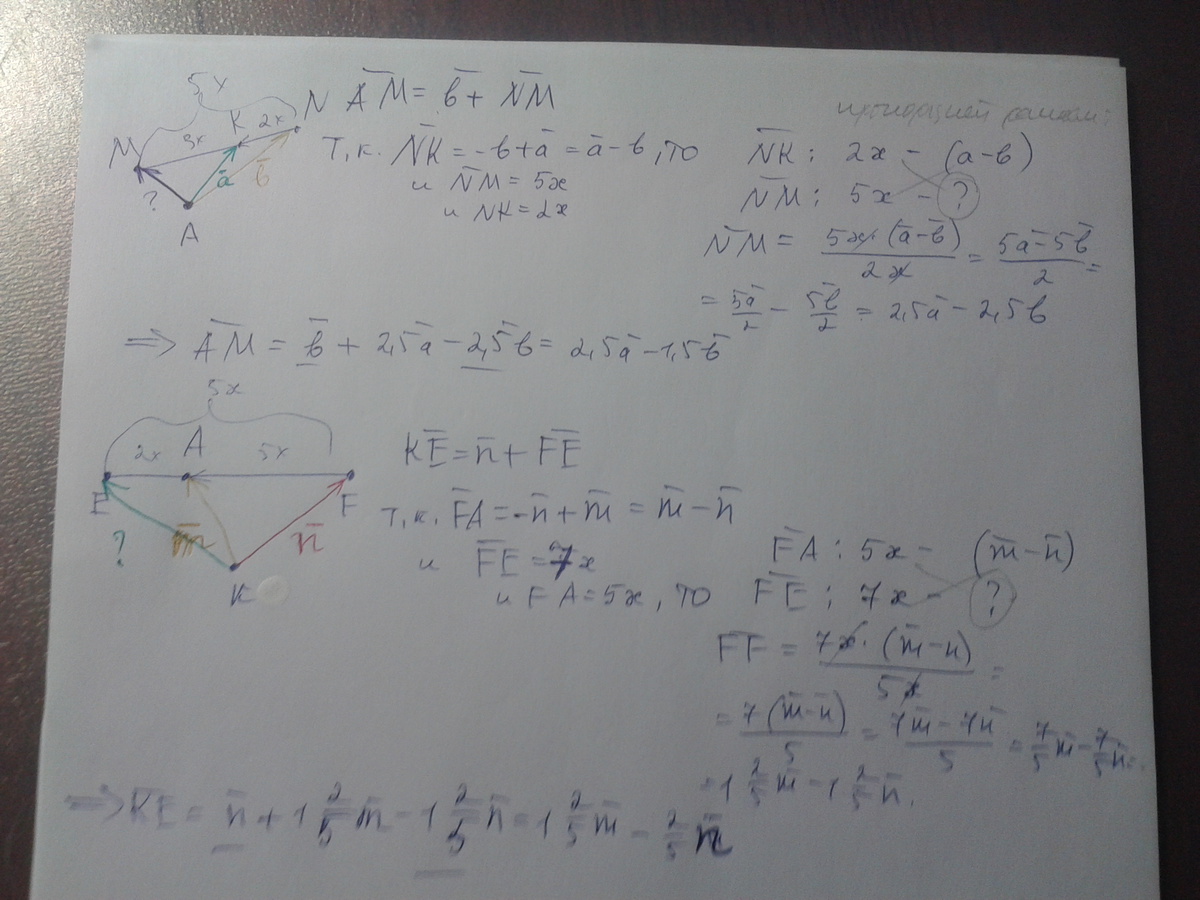 5x
3x K 2x N
M
ā b̄
?
A
A̅M̅ = b̄ + N̅M̅
Т.к. N̅K̅ = -b + ā = ā - b, то
и N̅M̅ = 5x
и NK = 2x
N̅K̅: 2x - (a-b)
N̅M̅: 5x - ?
N̅M̅ = 5x·(ā-b̄)/2x = 5ā-5b̄/2 =
= 5ā/2 - 5b̄/2 = 2,5ā - 2,5b
=> A̅M̅ = b̄ + 2,5ā - 2,5b̄ = 2,5ā - 1,5b̄
5x
2x A 5x
E F
? m̄ n̄
K
K̅E̅ = n̄ + F̅E̅
Т.к. F̅A̅ = -n̄ + m̄ = m̄ - n̄
и F̅E̅ = 7x
и FA = 5x, то
F̅A̅: 5x - (m̄-n̄)
F̅E̅: 7x - ?
F̅F̅ = 7x·(m̄-n)/5x =
= 7(m̄-n̄)/5 = 7m̄-7n̄/5 = 7/5m̄ - 7/5n̄ =
= 1 2/5 m̄ - 1 2/5 n̄.
=> K̅E̅ = n̄ + 1 2/5 m̄ - 1 2/5 n̄ = 1 2/5 m̄ - 2/5 n̄